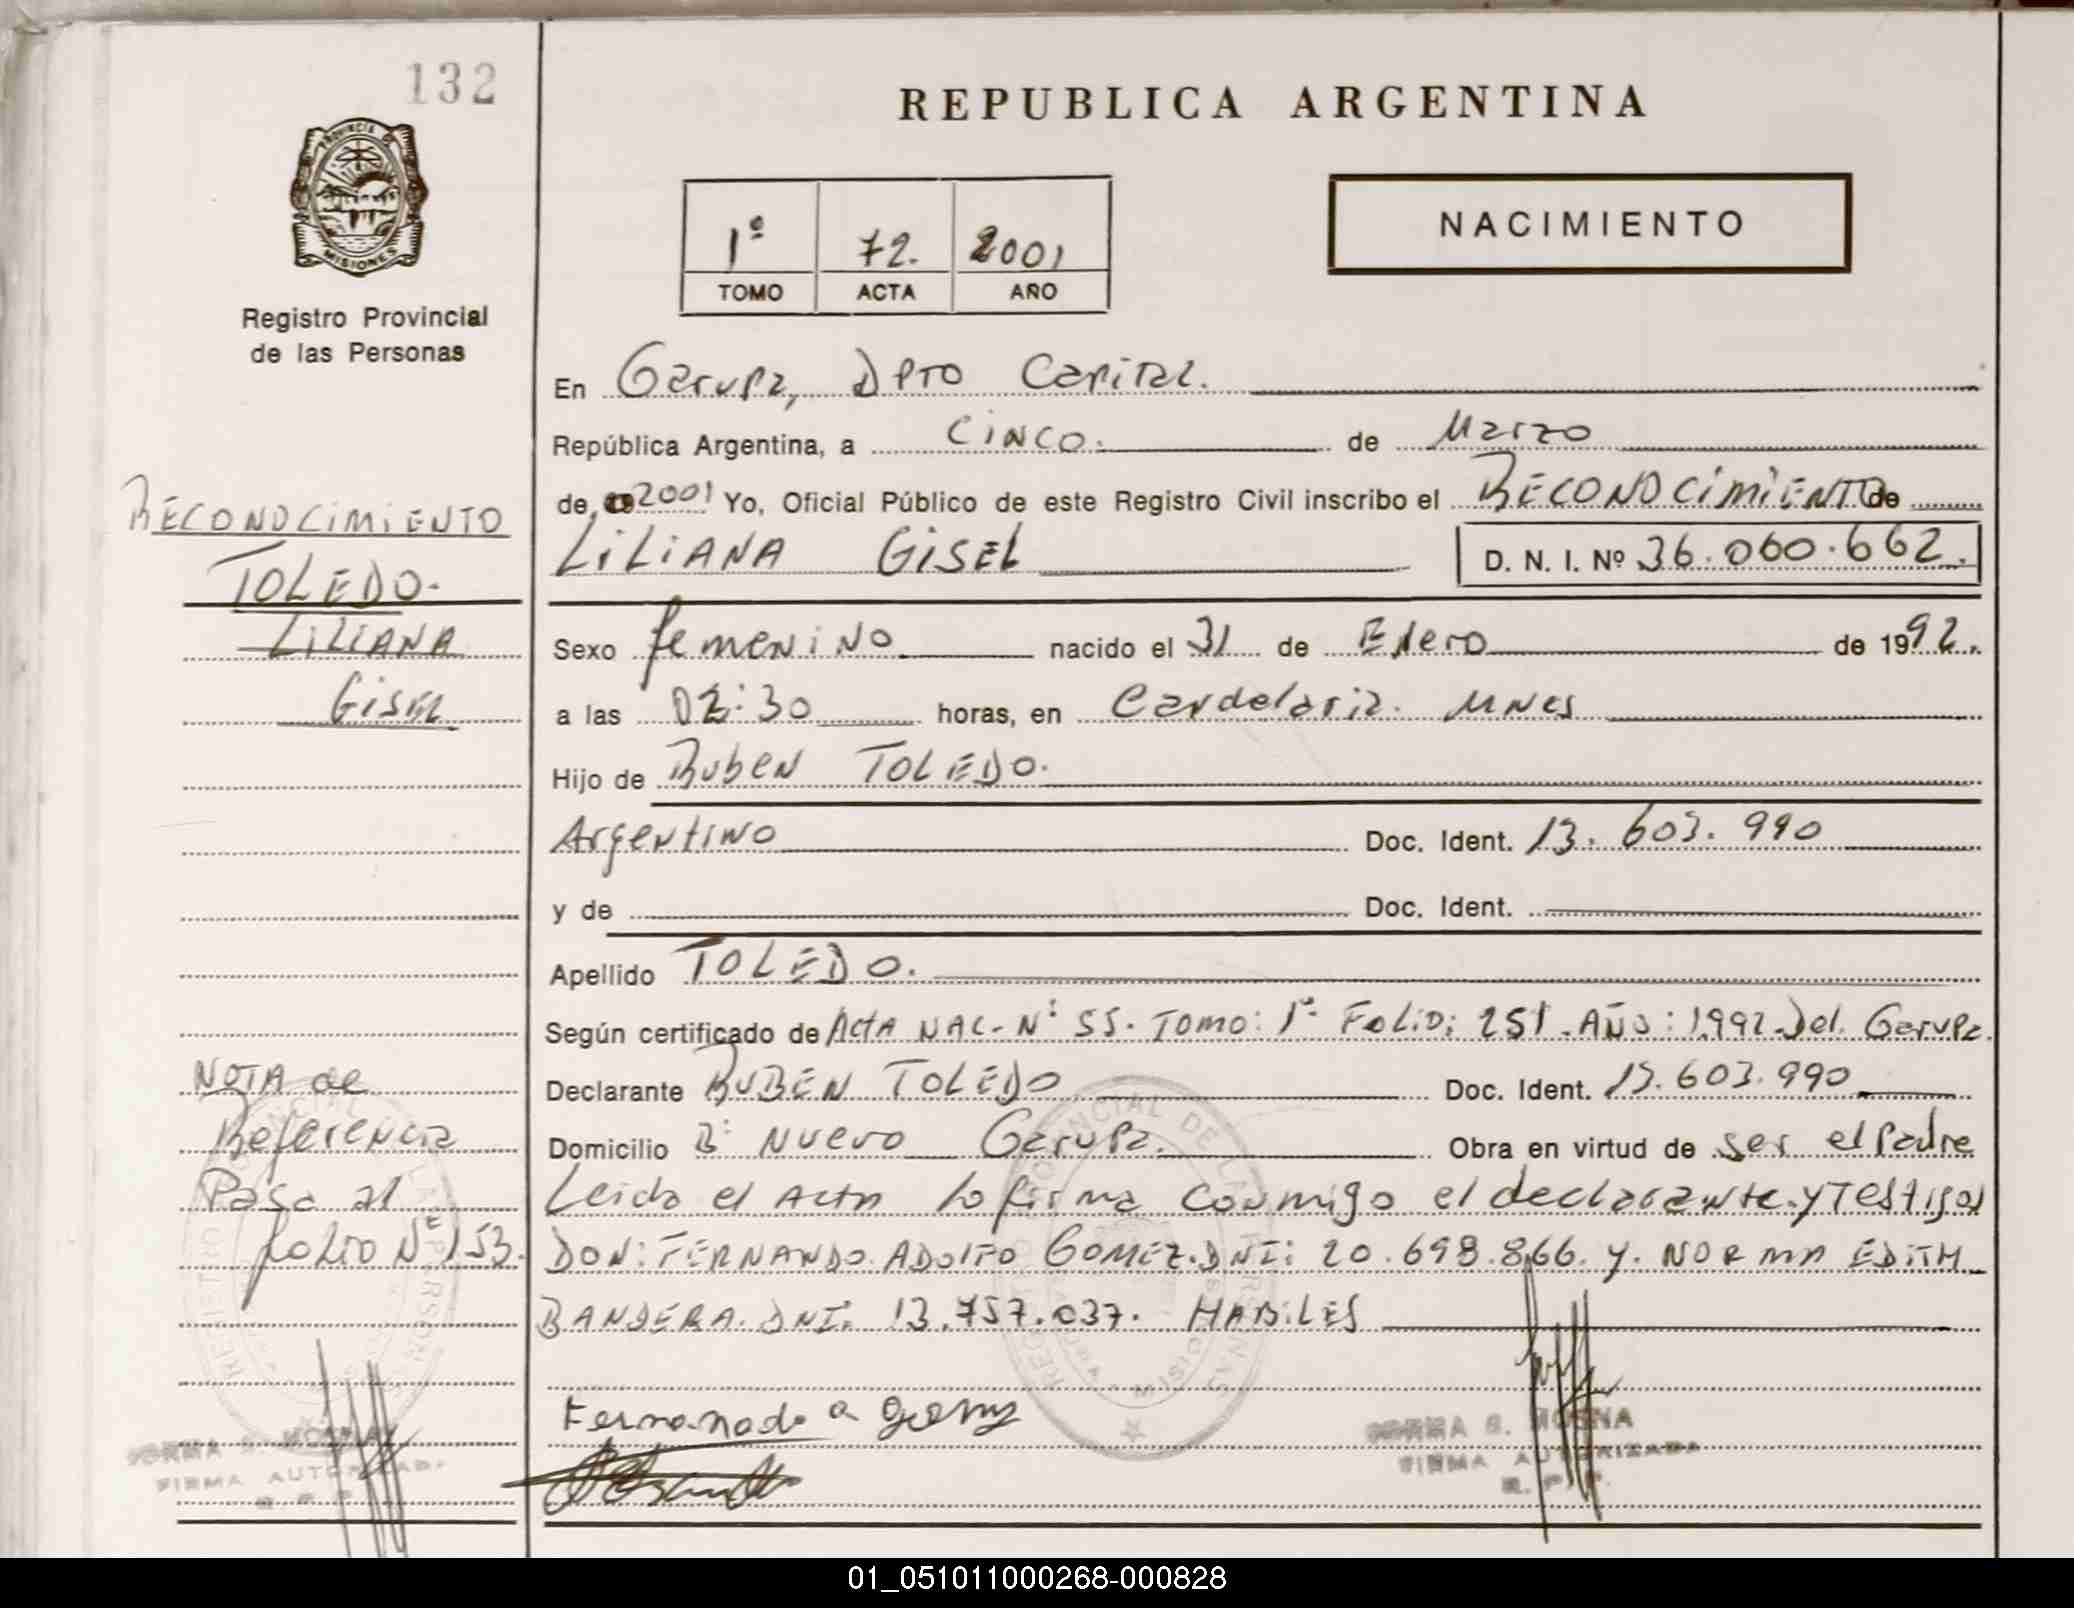 132
PROVINCIA DE
MISIONES
Registro Provincial
de las Personas
RECONOCIMIENTO
TOLEDO.
LILIANA
GISEL
NOTA de
Referencia
Pasa al
folio Nº 153.
REPUBLICA ARGENTINA
1º 72. 2001
TOMO ACTA AÑO
NACIMIENTO
En Garupa, Dpto Capital.
República Argentina, a CINCO. de Marzo
de 2001 Yo, Oficial Público de este Registro Civil inscribo el RECONOCIMIENTO de
LILIANA GISEL D. N. I. Nº 36.060.662.
Sexo femenino nacido el 31 de Enero de 1992.
a las 02:30 horas, en Candelaria. MNES
Hijo de Ruben TOLEDO.
Argentino Doc. Ident. 13.603.990
y de Doc. Ident.
Apellido TOLEDO.
Según certificado de Acta NAC. Nº 55. Tomo: 1º Folio: 251. Año: 1992. Del. Garupa.
Declarante RUBEN TOLEDO Doc. Ident. 13.603.990
Domicilio Bº Nuevo Garupa. Obra en virtud de ser el padre
Leida el Acta la firma conmigo el declarante y Testigos
DON: FERNANDO ADOLFO GOMEZ. DNI: 20.698.866. y. NORMA EDITH
BANDERA. DNI. 13.757.037. HABILES
Fernando a gomez
NORMA B. MOSNA
FIRMA AUTORIZADA
R. P. P.
NORMA B. MOSNA
FIRMA AUTORIZADA
R. P. P.
01_051011000268-000828